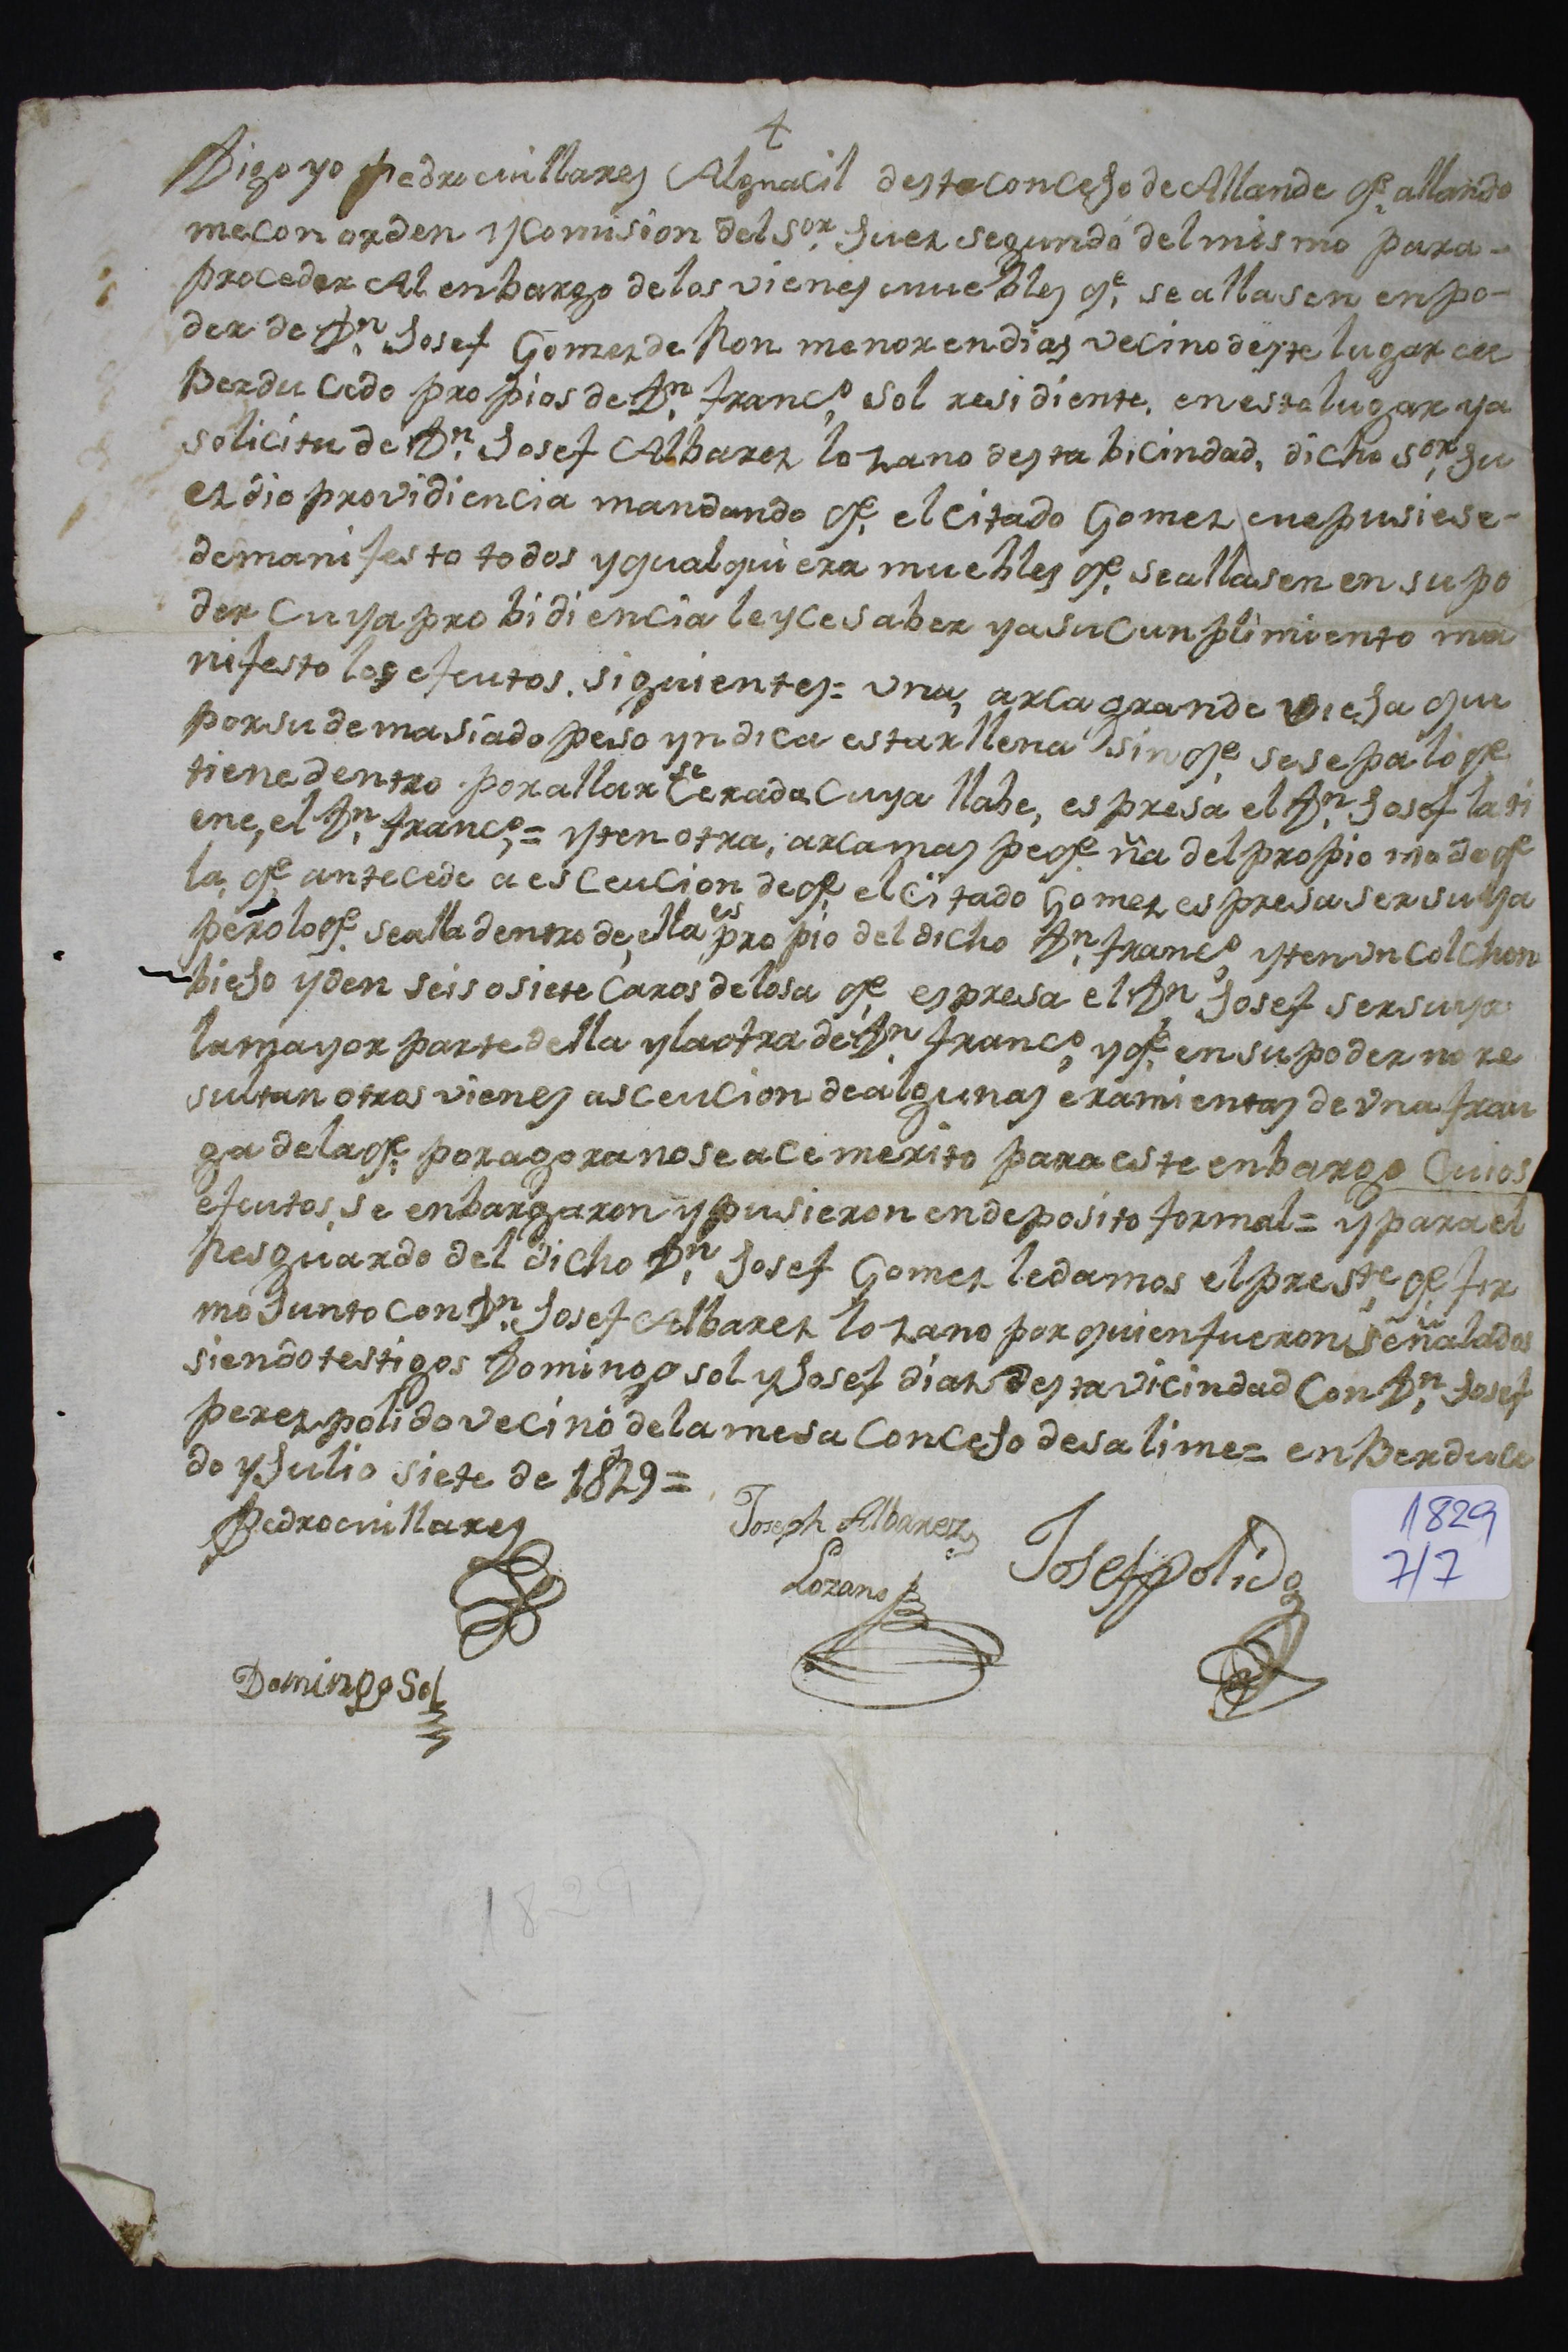 +
Digo yo Pedro villares Alguacil deste conceJo de Allande qe. allando
me con orden y Comision del Sor. Juez segundo del mismo para-
proceder Al enbargo de los vienes muebles qe. se allasen en po-
der de Dn. Josef Gomez de Ron menor en dias vecino deste lugar de
Berducedo propios de Dn. Franco. Sol residiente. en este lugar ya
solicitu de Dn. Josef Albarez lozano desta bicindad, dicho Sor. Ju
ez dio providiencia mandando qe. el Citado Gomez me pusiese-
de manifesto todos y qualquiera muebles qe. se allasen en su po
der Cuya probidiencia le yce saber y a su Cunplimiento ma
nifesto los efeutos. siguientes= una, arca grande vieJa qu
por su demasiado peso yndica estar llena sin qe. se sepa lo qe.
tiene dentro por allarse Cerada Cuya llabe, espresa el Dn. Josef la ti
ene, el Dn. Franco.= yten otra, arca mas peqe.ña del propio modo qe
la, qe. antecede a esceucion de qe. el Citado Gomez espresa ser suya
pero lo qe. se alla dentro de, ella es propio del dicho Dn. Franco. yten un Colchon
bieJo yden seis o siete Caros de losa qe. espresa el Dn. Josef ser suya
la mayor parte della y la otra de Dn. Franco. y qe. en su poder no re
sultan otros vienes a sceucion de algunas eramientas de una frau
ga de la qe. por agora no se ace merito para este enbargo Cuios
efeutos, se enbargaron y pusieron en deposito formal= y para el
Resguardo del dicho Dn. Josef Gomez le damos el preste. qe. fir
mo Junto Con Dn. Josef Albarez lozano por quien fueron señalados
siendo testigos Domingo sol y Josef diaz desta vicindad Con Dn. Josef
perez polido vecino de la mesa ConceJo de salime= en Berduce
do y Julio siete de 1829=
Pedro villares
Joseph Albarez
Lozano
Josef polido
1829
7/7
Domingo Sol
1829